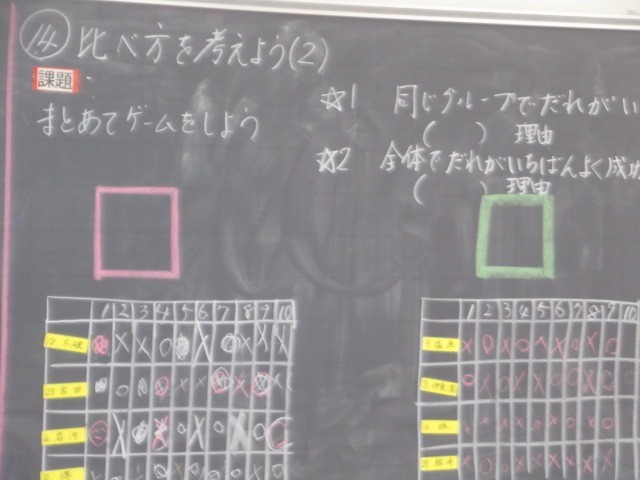 ⑭ 比べ方を考えよう(2)
課題
まとあてゲームをしよう
☆1 同じグループでだれがい
( ) 理由
☆2 全体でだれがいちばんよく成功
( ) 理由
1 2 3 4 5 6 7 8 9 10
1 2 3 4 5 6 7 8 9 10